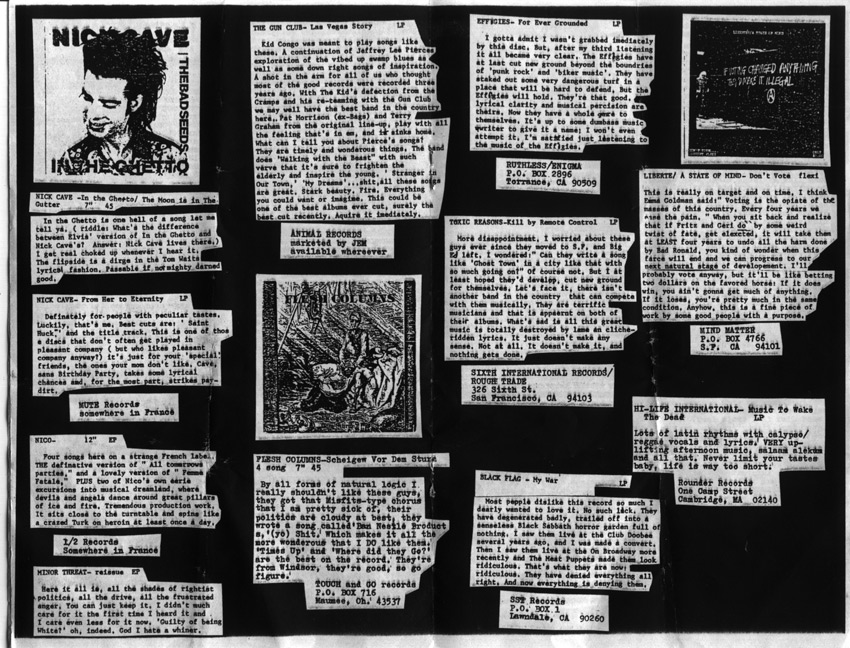 NICK CAVE
THE BAD SEEDS
IN THE GHETTO
NICK CAVE -In the Ghetto/ The Moon is in The
Gutter 7" 45
In the Ghetto is one hell of a song let me
tell ya. ( riddle: What's the difference
between Elvis' version of In the Ghetto and
Nick Cave's? Answer: Nick Cave lives there.)
I get real choked up whenever I hear it.
The flipside is a dirge in the Tom Waits
lyrical fashion. Passable if not mighty darned
good.
NICK CAVE- From Her to Eternity LP
Definately for people with peculiar tastes.
Luckily, that's me. Best cuts are: ' Saint
Huck,' and the title track. This is one of thos
e discs that don't often get played in
pleasent company ( but who likes pleasent
company anyway?) it's just for your 'special'
friends, the ones your mom don't like. Cave,
sans Birthday Party, takes some lyrical
chances and, for the most part, strikes pay-
dirt.
MUTE Records
somewhere in France
NICO- 12" EP
Four songs here on a strange French label.
THE definative version of " All tomorrows
parties," and a lovely version of " Femme
Fatale," PLUS two of Nico's own eerie
excursions into musical dreamland, where
devils and angels dance around great pillars
of ice and fire. Tremendous production work.
It sits close to the turntable and spins like
a crazed Turk on heroin at least once a day.
1/2 Records
Somewhere in France
MINOR THREAT- reissue EP
Here it all is, all the shades of rightist
politics, all the drive, all the frustrated
anger. You can just keep it. I didn't much
care for it the first time I heard it and
I care even less for it now. 'Guilty of being
White?' oh, indeed. God I hate a whiner.
THE GUN CLUB- Las Vegas Story LP
Kid Congo was meant to play songs like
these. A continuation of Jeffrey Lee Pierces
exploration of the vibed up swamp blues as
well as some down right songs of inspiration.
A shot in the arm for all of us who thought
most of the good records were recorded three
years ago. With The Kid's defection from the
Cramps and his re-teaming with the Gun Club
we may well have the best band in the country
here. Pat Morrison (ex-Bags) and Terry
Graham from the original line-up, play with all
the feeling that's in em, and it sinks home.
What can I tell you about Pierce's songs?
They are timely and wonderous things. The band
does 'Walking with the Beast" with such
verve that it's sure to frighten the
elderly and inspire the young. ' Stranger in
Our Town,' 'My Dreams'...shit,all these songs
are great. Stark beauty, Fire, Everything
you could want or imagine. This could be
one of the best albums ever cut, surely the
best cut recently. Aquire it imediately.
ANIMAL RECORDS
marketed by JEM
available wherever
FLESH COLUMNS
FLESH COLUMNS-Scheigew Vor Dem Sturm
4 song 7" 45
By all forms of natural logic I
really shouldn't like these guys,
they got that Misfits-type chorus
that I am pretty sick of, their
politics are cloudy at best, they
wrote a song called'Ban Nestle Product
s,'(yo) Shit. Which makes it all the
more wonderous that I DO like them.
'Times Up' and 'Where did they Go?'
are the best on the record. They're
from Windsor, they're good, so go
figure.
TOUCH and GO records
P.O. BOX 716
Maumee, Oh. 43537
EFFIGIES- For Ever Grounded LP
I gotta admit I wasn't grabbed imediately
by this disc. But, after my third listening
it all became very clear. The Effigies have
at last cut new ground beyond the boundries
of 'punk rock' and 'biker music'. They have
staked out some very dangerous turf in a
place that will be hard to defend. But the
Effigies will hold. They're that good. A
lyrical clarity and musical percision are
theirs. Now they have a whole genre to
themselves. It's up to some dumbass music
writer to give it a name; I won't even
attempt it. I'm satified just listening to
the music of the Effigies.
RUTHLESS/ENIGMA
P.O. BOX 2896
Torrance, CA 90509
TOXIC REASONS-Kill by Remote Control LP
More disappointment, I worried about these
guys ever since they moved to S.F. and big
Ed left, I wondered:" Can they write a song
like 'Ghost Town' in a city like that with
so much going on?" Of course not. But I at
least hoped they'd develop, cut new ground
for themselves. Let's face it, there isn't
another band in the country that can compete
with them musically. They are terrific
musicians and that is apparent on both of
their albums. What's sad is all this great
music is totally destroyed by lame an cliche-
ridden lyrics. It just doesn't make any
sense. Not at all. It doesn't make it, and
nothing gets done.
SIXTH INTERNATIONAL RECORDS/
ROUGH TRADE
326 Sixth St.
San Francisco, CA 94103
BLACK FLAG - My War LP
Most people dislike this record so much I
dearly wanted to love it. No such luck. They
have degenerated badly, trailed off into a
senseless Black Sabbath horror garden full of
nothing. I saw them live at the Club Doobee
several years ago, and I was made a convert.
Then I saw them live at the On Broadway more
recently and The Meat Puppets made them look
ridiculous. That's what they are now;
ridiculous. They have denied everything all
right. And now everything is denying them.
SST Records
P.O. BOX 1
Lawndale, CA 90260
IF VOTING CHANGED ANYTHING
THEY'D MAKE IT ILLEGAL
LIBERTE/ A STATE OF MIND- Don't Vote flexi
This is really on target and on time. I think
Emma Goldman said:" Voting is the opiate of the
masses of this country. Every four years we
ease the pain. " When you sit back and realize
that if Fritz and Geri do by some weird
twist of fate, get elexcted, it will take them
at LEAST four years to undo all the harm done
by Bad Ronald, you kind of wonder when this
farce will end and we can progress to our
next natural stage of developement. I'll
probably vote anyway, but it'll be like betting
two dollars on the favored horse: If it does
win, you ain't gonna get much of anything.
If it loses, you're pretty much in the same
condition. Anyhow, this is a fine piece of
work by some good people with a purpose.
MIND MATTER
P.O. BOX 4766
S.F. CA 94101
HI-LIFE INTERNATIONAL- Music To Wake
The Dead LP
Lots of latin rhythms with calypso/
reggae vocals and lyrics. VERY up-
lifting afternoon music, salaam aleikem
and all that. Never limit your tastes
baby, life is way too short.
Rounder Records
One Camp Street
Cambridge, MA 02140